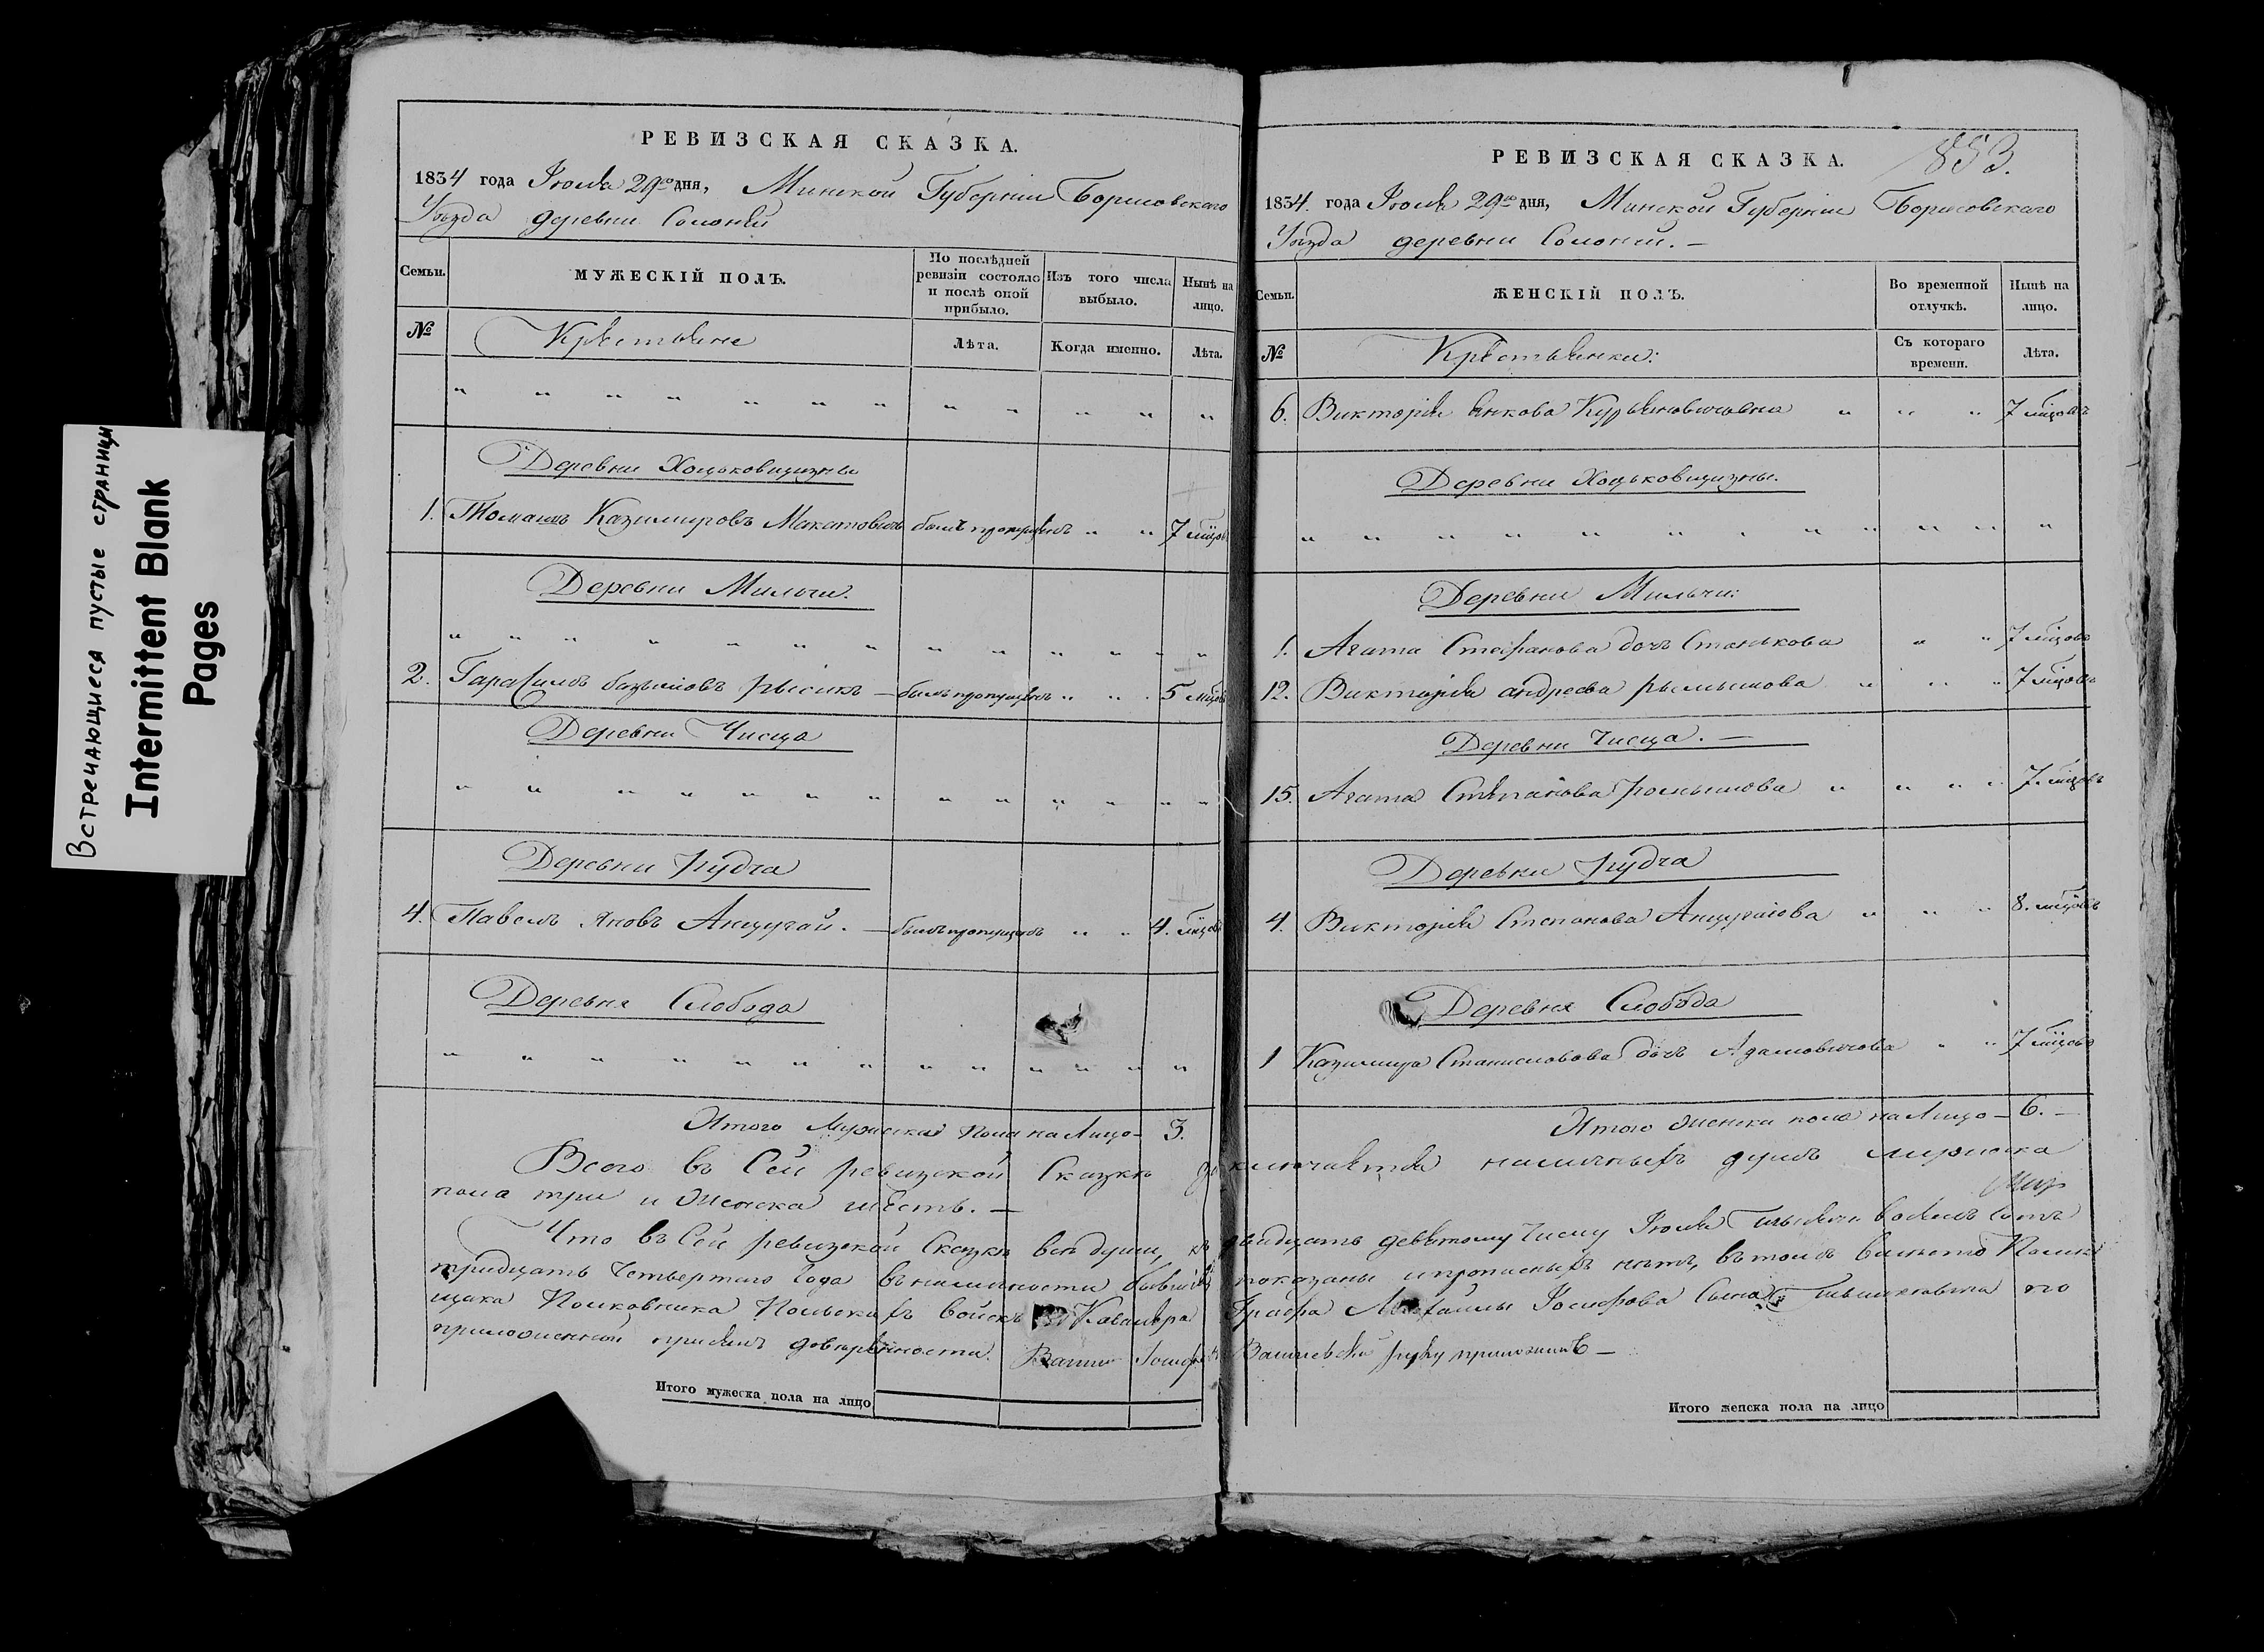 Встречающиеся пустые страницы
Intermittent Blank
Pages
РЕВИЗСКАЯ СКАЗКА.
1834 года Іюля 29го дня, Минской Губерніи Борисовского
Уѣзда деревни Солоній
Семьи.
МУЖЕСКІЙ ПОЛЪ.
По послѣдней ревизіи состояло и послѣ оной прибыло.
Изъ того числа выбыло.
Нынѣ на лицо.
№
Крестьяне
Лѣта.
Когда именно.
Лѣта.
Деревни Хоцьковщизны
1. Томашъ Казимировъ былъ пропущенъ " " 7 мѣцовъ
Деревни Мильчи.
2. Гарасимъ рысикъ — былъ пропущенъ " " 5 мѣцовъ
Деревни Чисца
Деревни Рудча
4. Павелъ Яновъ Анцугай. — былъ пропущенъ " " 4. мѣцовъ
Деревня Слобода
Итого Мужеска пола на Лицо — 3.
Всего въ Сей ревизской Сказкѣ
пола три и Женска шесть. —
Что въ Сей ревизской Сказкѣ всѣ души, къ
тридцать Четвертаго Года въ наличности бывшія
щика Полковника Польскихъ войскъ Кавалера
приложенной при семъ довѣренности.
Итого мужеска пола на лицо
РЕВИЗСКАЯ СКАЗКА.
853.
1834. года Іюля 29го дня, Минской Губерніи Борисовскаго
Уѣзда деревни Солоній. —
Семьи.
ЖЕНСКІЙ ПОЛЪ.
Во временной отлучкѣ.
Нынѣ на лицо.
№
Крестьянки:
Съ котораго времени.
Лѣта.
6. Викторія Янкова " " " 7 мѣцовъ
Деревни Хоцьковщизны.
Деревни Мильчи:
1. Агата Стефанова дочь Станькова " " 7 мѣцовъ
12. Викторія андреева " " " 7 мѣцовъ
Деревни Чисца. —
15. Агата Степанова " " " " 7 мѣцовъ
Деревни Рудча
4. Викторія Степанова Анцугаіова " " " 8. мѣцовъ
Деревня Слобода
1 Казимира Станиславова дочь Адамовичова " " 7 мѣцовъ
Итого женска пола на Лицо — 6. —
заключается наличныхъ душъ мужеска
двадцать девятому Числу Іюля тысяча восемь сотъ
показаны и прописныхъ нѣтъ, въ томъ вмѣсто Помѣ
Графа Михайлы Іосифова Сына Тышкевича по
руку приложилъ —
Итого женска пола на лицо